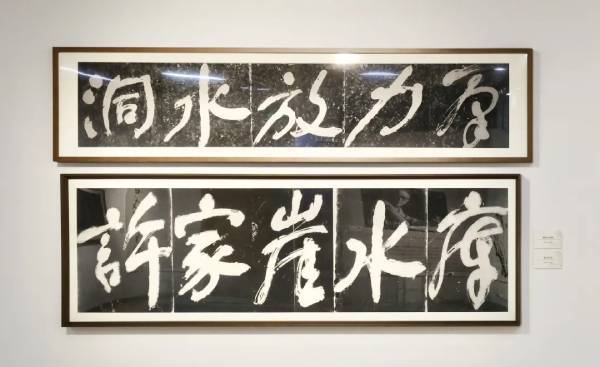 力放水洞
許家崖水库